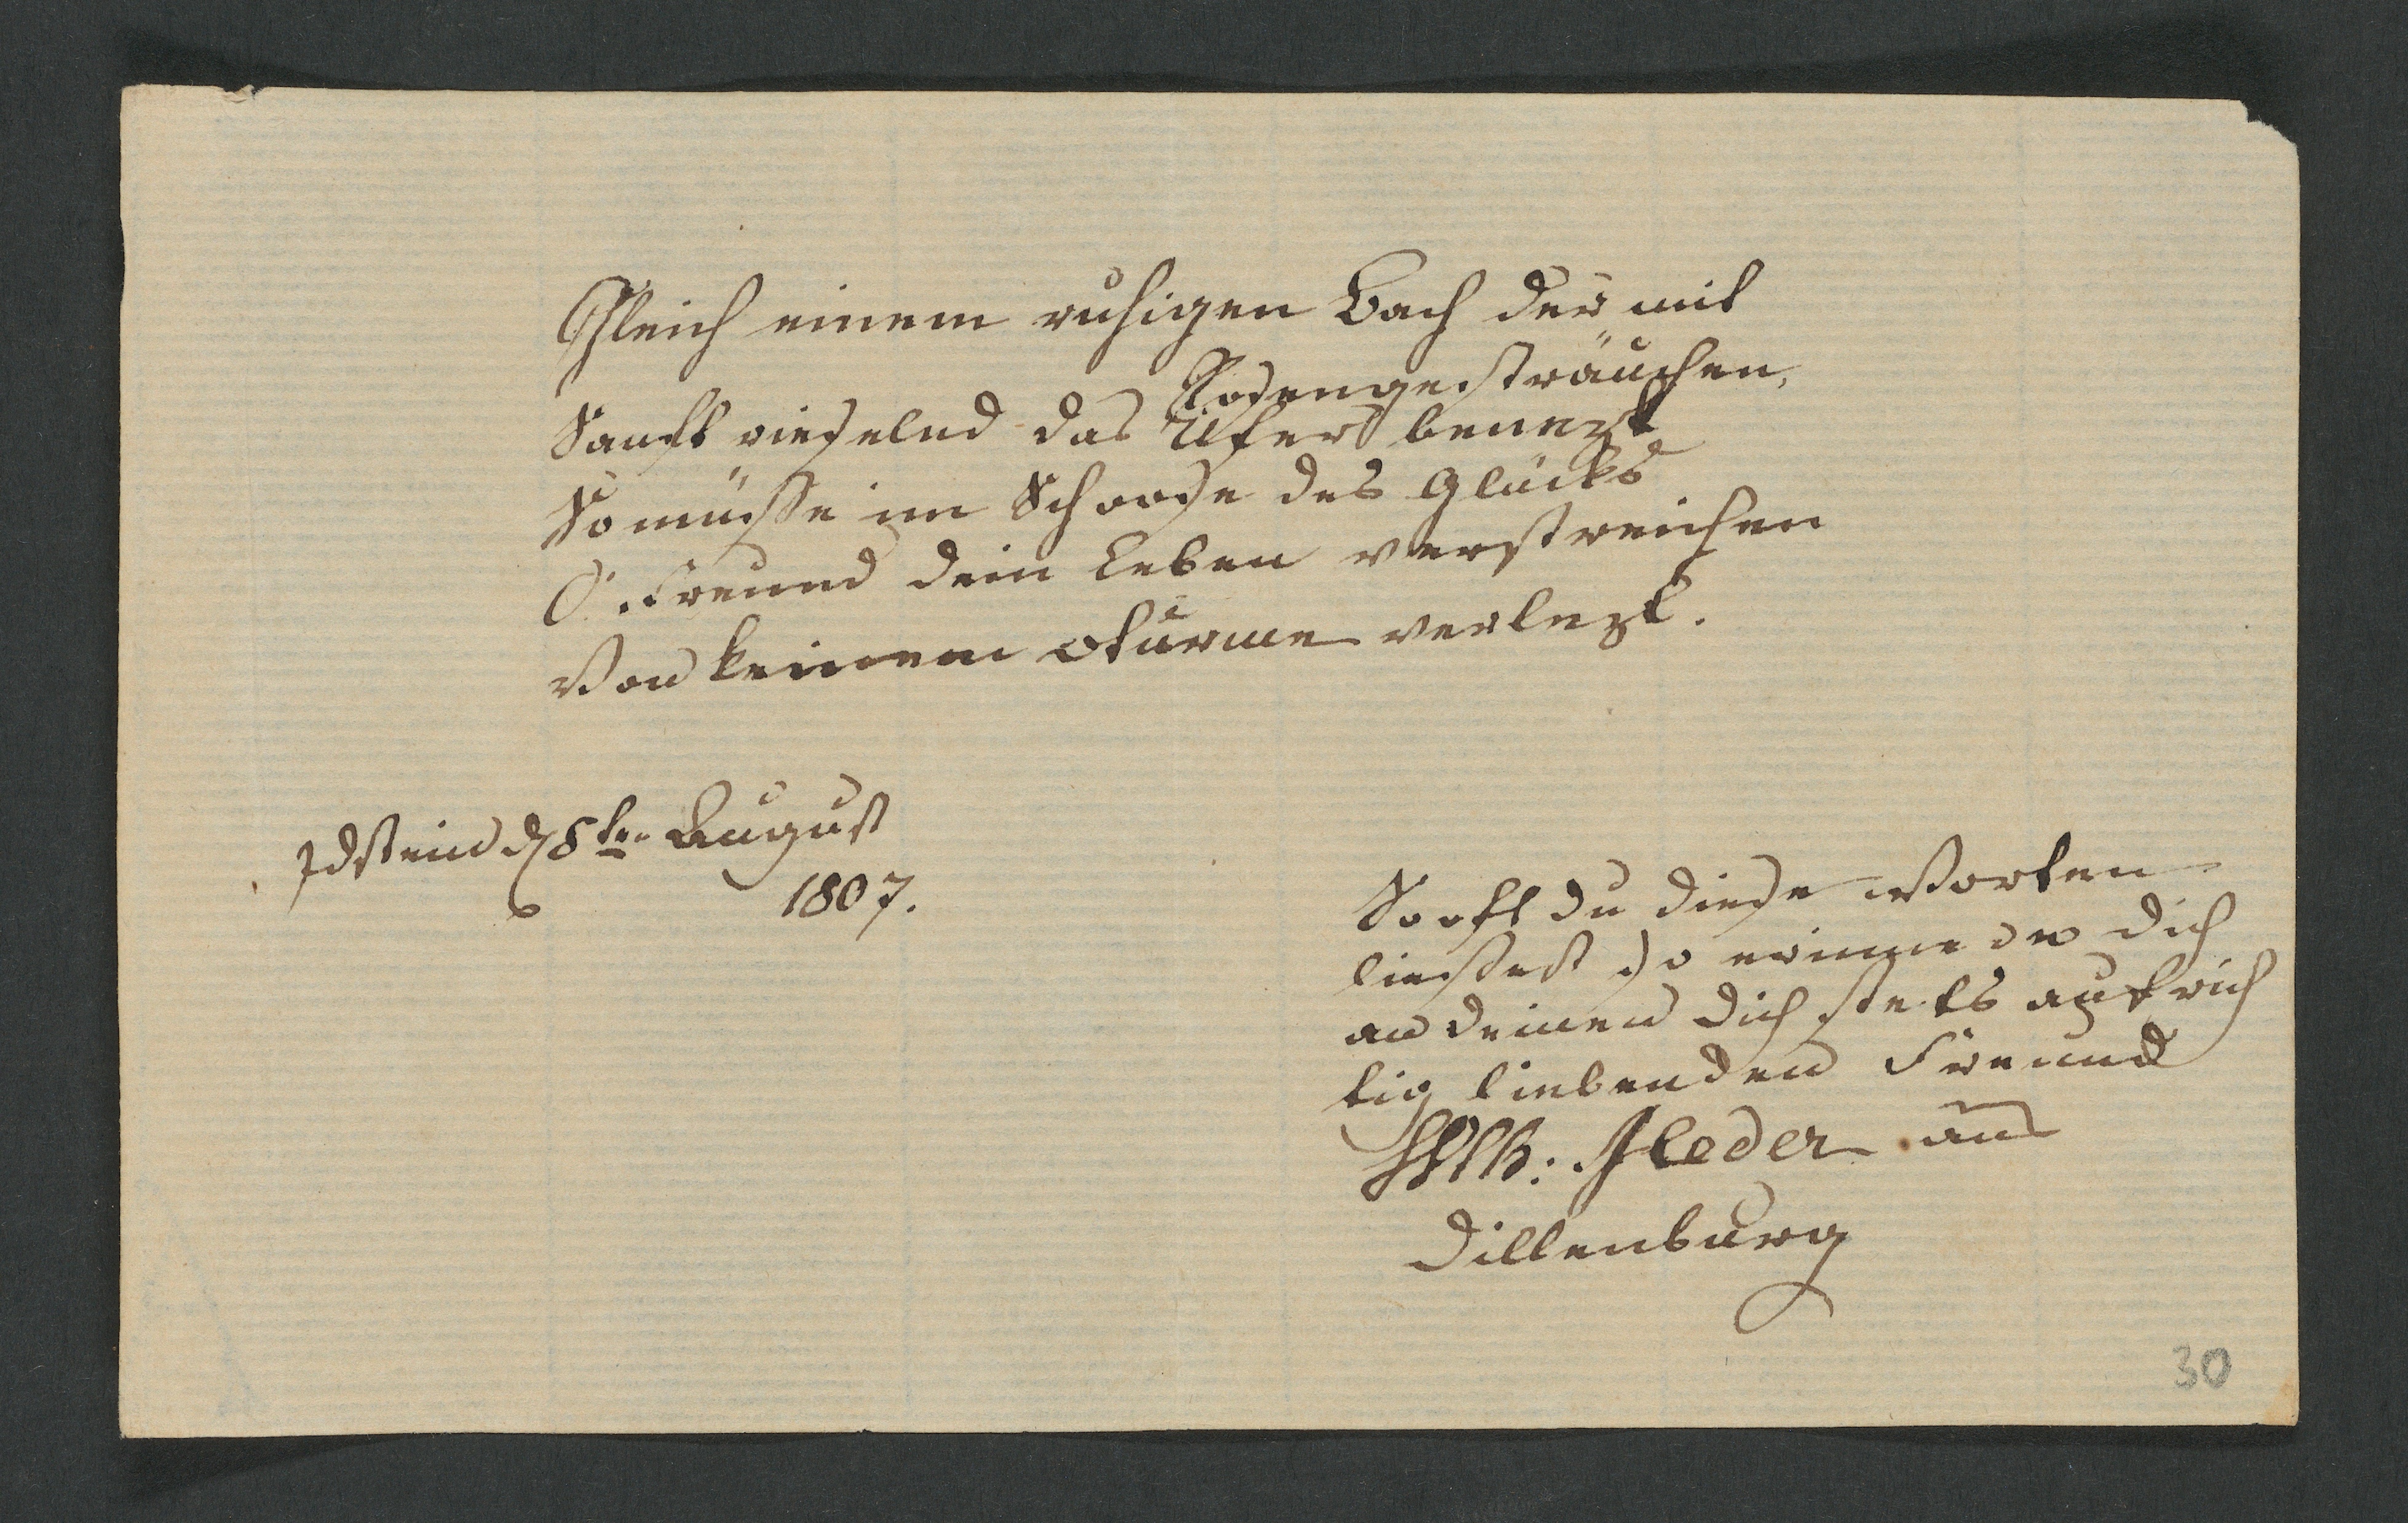 Gleich einem ruhigen Bach der mit
Rosengesträuchen,
Sanft rieselnd das Ufer benezt
So müsse im Schoose des Glücks
O. Freund dein Leben verstreichen
Von keinem Sturme verlezt.
Idstein d 8ten August
1807.
So oft du diese Worten
liessest so erinnere dich
an deinen dich stets aufrich
tig liebenden Freund
aus
Dillenburg
30